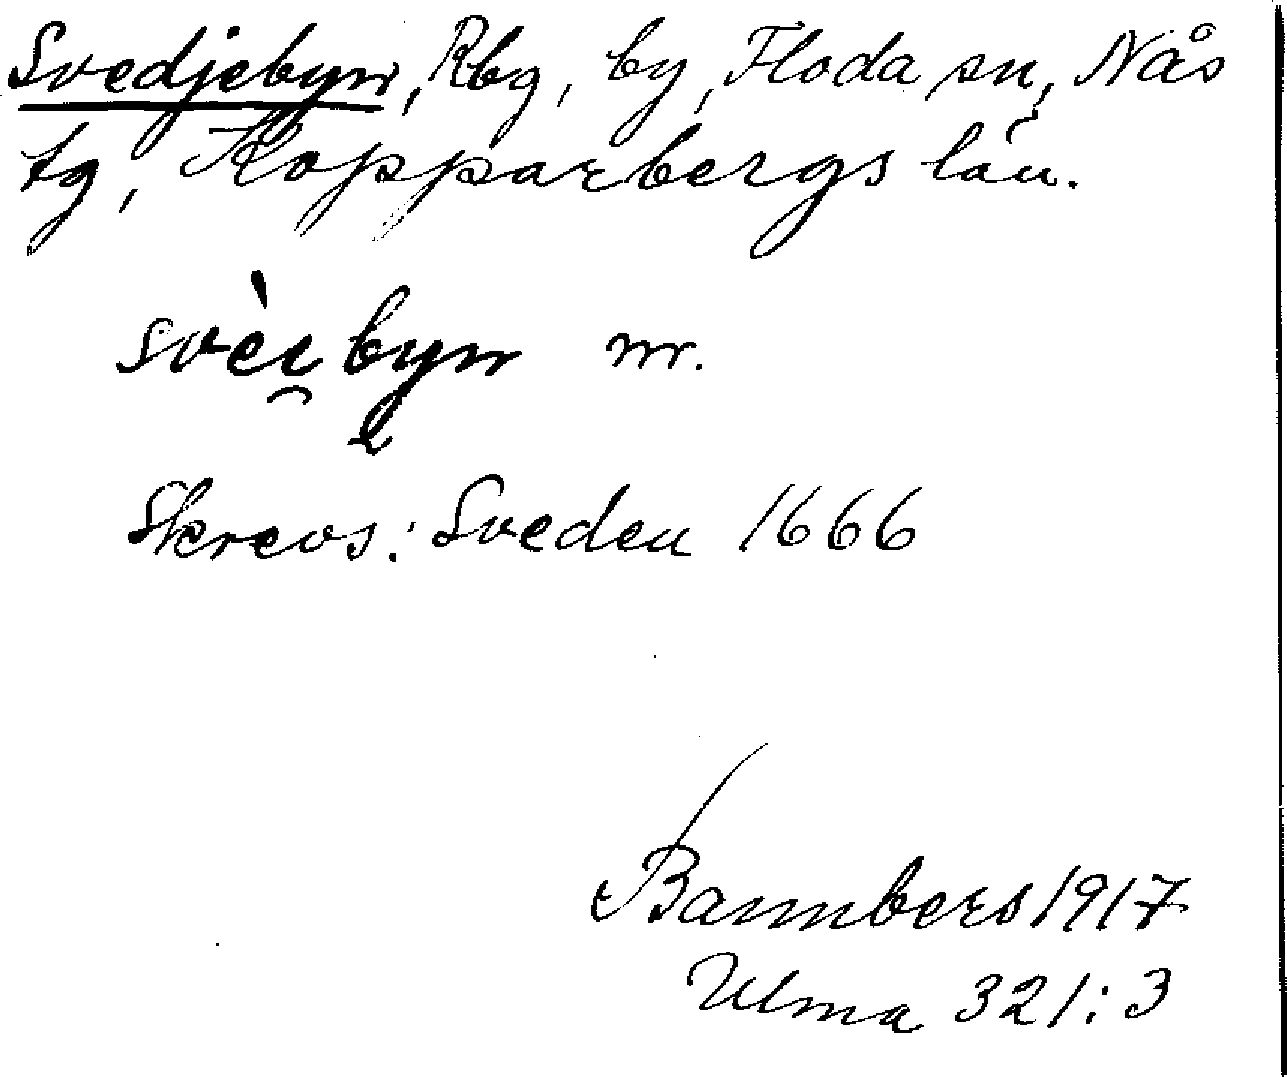 Svedjebyn, Rbg, by, Floda sn, Nås
tg, Kopparbergs län.
svèi̯byn nr.
Skrevs: Sveden 1666
Bannbers 1917
Ulma 321:3